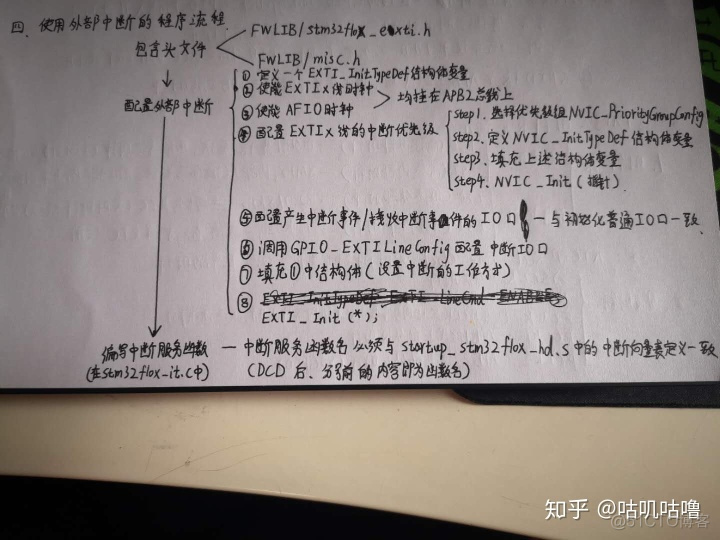 四、使用外部中断的程序流程
FWLIB/stm32f10x_exti.h
包含头文件
FWLIB/misc.h
① 定义一个EXTI_InitTypeDef结构体变量
② 使能EXTIx线时钟
配置外部中断
均挂在APB2总线上
③ 使能AFIO时钟
④ 配置EXTIx线的中断优先级
step1. 选择优先级组NVIC_PriorityGroupConfig
step2. 定义NVIC_InitTypeDef结构体变量
step3. 填充上述结构体变量
step4. NVIC_Init(指针)
⑤ 配置产生中断事件/接收中断事件的IO口 — 与初始化普通IO口一致
⑥ 调用GPIO_EXTILineConfig配置中断IO口
⑦ 填充①中结构体(设置中断的工作方式)
⑧ EXTI_InitTypeDef. EXTI_LineCmd=ENABLE;
EXTI_Init(*);
编写中断服务函数 — 中断服务函数名必须与startup_stm32f10x_hd.s中的中断向量表定义一致
(在stm32f10x_it.c中) (DCD 后、分号前的内容即为函数名)
知乎 @咕叽咕噜
@51CTO博客